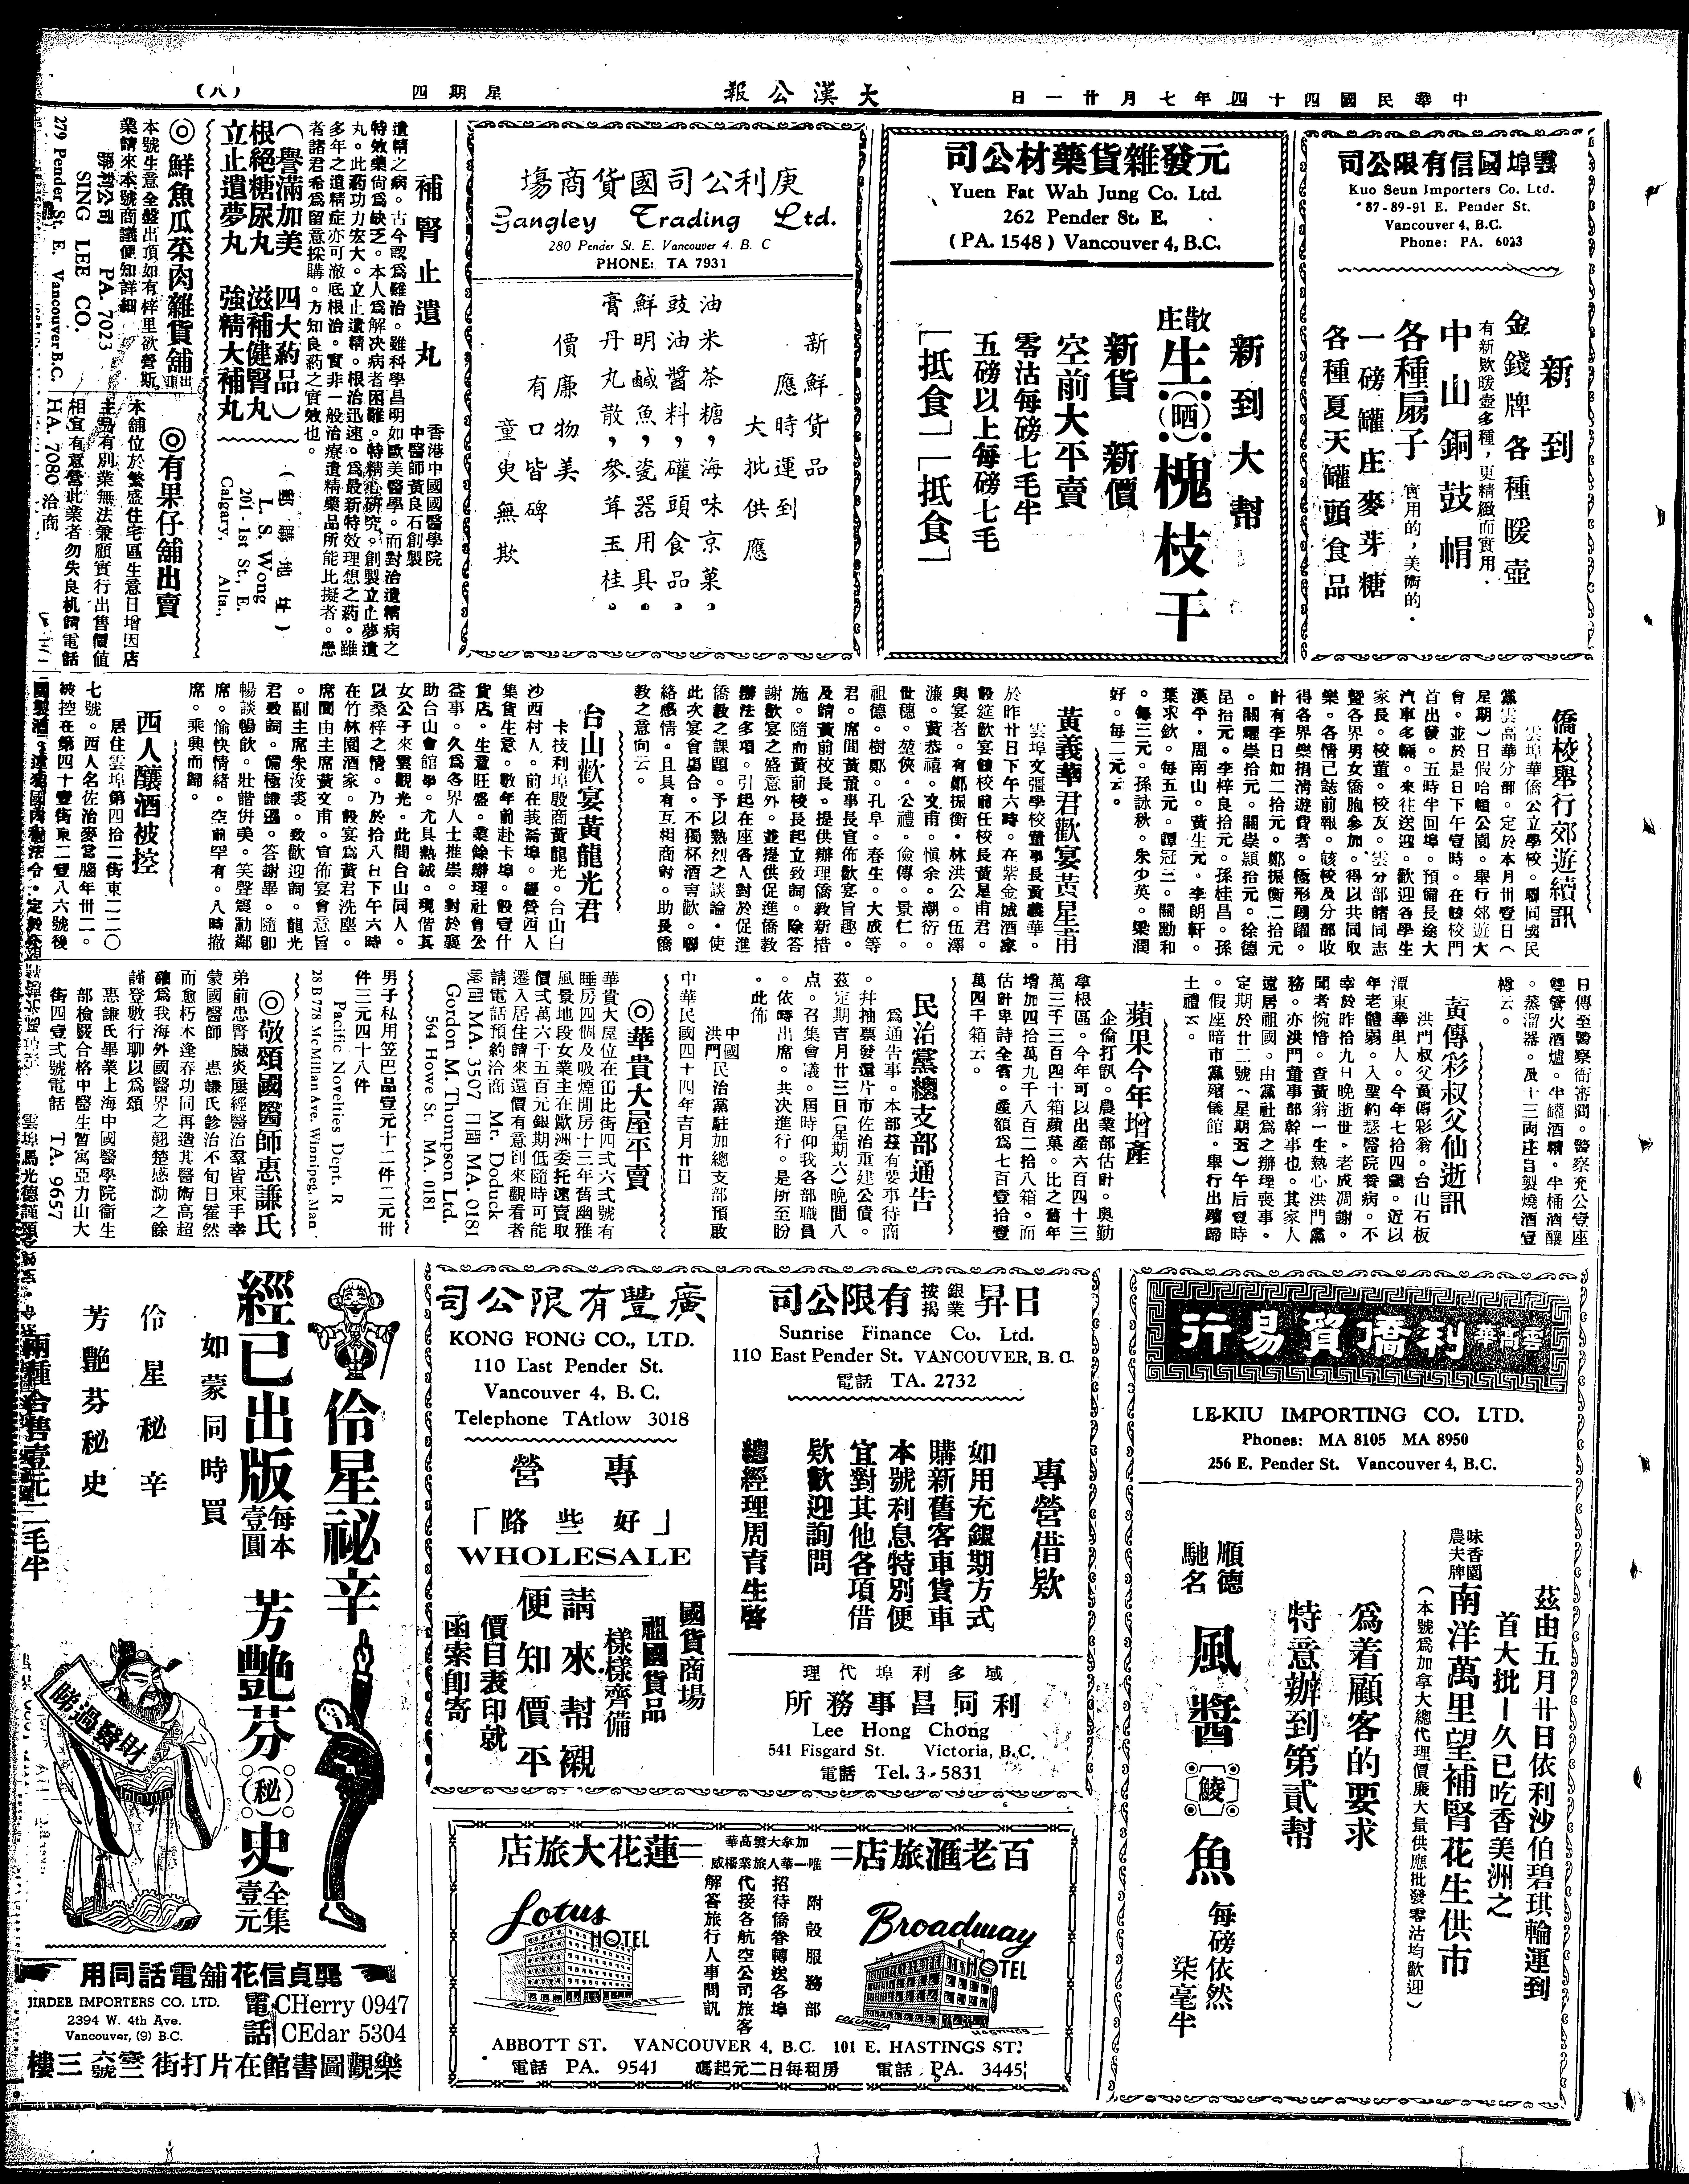 中華民國四十四年七月廿一日
大漢公報
星期四
（八）
雲埠國信有限公司
Kuo Seun Importers Co. Ltd.
87-89-91 E. Pender St.
Vancouver 4, B.C.
Phone: PA. 6023
新到
金錢牌各種暖壺
有新欵暖壺多種，更精緻而實用．
中山銅鼓帽
各種扇子
實用的，美術的．
一磅罐庄麥芽糖
各種夏天罐頭食品
元發雜貨藥材公司
Yuen Fat Wah Jung Co. Ltd.
262 Pender St. E.
(PA. 1548) Vancouver 4, B.C.
新到大幫
散庄生（晒）槐枝干
新貨 新價
空前大平賣
零沽每磅七毛半
五磅以上每磅七毛
「抵食」「抵食」
庚利公司國貨商塲
Gangley Trading Ltd.
280 Pender St. E. Vancouver 4. B. C
PHONE: TA 7931
新鮮貨品
應時運到
大批供應
油米茶糖，海味京菓。
豉油醬料，礶頭食品。
鮮明鹹魚，瓷器用具。
膏丹丸散，參茸玉桂。
價廉物美
有口皆碑
童叟無欺
補腎止遺丸
香港中國國醫學院
中醫師黃良石創製
遺精之病。古今認爲難治。雖科學昌明如歐美醫學。而對治遺精病之
特效藥尙爲缺乏。本人爲解决病者困難。特精心研究。創製立止夢遺
丸。此葯功力宏大。立止遺精。根治迅速。爲最新特效理想之葯。雖
多年之遺精症亦可澈底根治。實非一般治療遺精藥品所能比擬者。患
者諸君希爲留意採購。方知良葯之實效也。
（譽滿加美 四大葯品）
根絕糖尿丸 滋補健腎丸
立止遺夢丸 強精大補丸
（郵購地址）
L. S. Wong
201-1st St., E.
Calgary, Alta.,
◎鮮魚瓜菜肉雜貨舖出頂
本號生意全盤出頂如有梓里欲營斯
業請來本號商議便知詳細
勝利公司 PA. 7023
SING LEE CO.
279 Pender St. E. Vancouver B.C.
◎有果仔舖出賣
本舖位於繁盛住宅區生意日增因店
主另有別業無法兼顧實行出售價值
相宜有意營此業者勿失良机請電話
HA. 7080 洽商
僑校舉行郊遊續訊
雲埠華僑公立學校。聯同國民
黨雲高華分部。定於本月卅壹日（
星期）日假哈頓公園。舉行郊遊大
會。並於是日下午壹時。在該校門
首出發。五時半回埠。預備長途大
汽車多輛。來往送迎。歡迎各學生
家長。校董。校友。雲分部諸同志
暨各界男女僑胞參加。得以共同取
樂。各情已誌前報。該校及分部收
得各界樂捐淸遊費者。極形踴躍。
計有李日如二拾元。鄭振衡二拾元
。關耀崇拾元。關崇穎拾元。徐德
昆拾元。李梓良拾元。孫桂昌。孫
漢平。周南山。黃生元。李朗軒。
葉求欽。每五元。譚冠三。關勤和
。每三元。孫詠秋。朱少英。梁潤
好。每二元云。
黃義華君歡宴黃星甫
雲埠文彊學校董事長黃義華。
於昨廿日下午六時。在紫金城酒家
設筵歡宴該校前任校長黃星甫君。
與宴者。有鄭振衡．林洪公。伍澤
濂。黃恭禧。文甫。愼余。潮衍。
世穗。堃俠。公禮。儉傳。景仁。
祖德。樹鄭。孔阜。春生。大成等
君。席間黃董事長官佈歡宴旨趣。
及請黃前校長。提供辦理僑敎新措
施。隨而黃前校長起立致詞。除答
謝歡宴之盛意外。並提供促進僑敎
辦法多項。引起在座各人對於促進
僑敎之課題。予以熱烈之談論。使
此次宴會塲合。不獨杯酒言歡。聯
絡感情。且具有互相商討。助長僑
敎之意向云。
台山歡宴黃龍光君
卡技利埠殷商黃龍光。台山白
沙西村人。前在莪崙埠。經營西人
集貨生意。數年前赴卡埠。設壹什
貨店。生意旺盛。業餘辦理社會公
益事。久爲各界人士推崇。對於襄
助台山會館事。尤具熱誠。現偕其
女公子來雲觀光。此間台山同人。
以桑梓之情。乃於拾八日下午六時
在竹林園酒家。設宴爲黃君洗塵。
席間由主席黃文甫。官佈宴會意旨
。副主席朱浚裘。致歡迎詞。龍光
君致詞。備極謙遜。答謝畢。隨卽
暢談暢飲。壯譜併美。笑聲震動鄰
席。愉快情緒。空前罕有。八時撤
席。乘興而歸。
西人釀酒被控
居住雲埠第四拾二街東二二〇
七號。西人名佐治麥當腦年卅二。
被控在第四十壹街東二壹八六號後
日傳至警察衙審問。警察充公壹座
雙管火酒爐。半罐酒精。半桶酒釀
。蒸溜器。及十三両庄自製燒酒壹
樽云。
黃傳彩叔父仙逝訊
洪門叔父黃傳彩翁。台山石板
潭東華里人。今年七拾四歲。近以
年老體弱。入聖約瑟醫院養病。不
幸於昨拾九日晚逝世。老成凋謝。
聞者惋惜。查黃翁一生熱心洪門黨
務。亦洪門董事部幹事也。其家人
遠居祖國。由黨社爲之辦理喪事。
定期於廿二號（星期五）午后壹時
。假座暗市黨殯儀館。舉行出殯歸
土禮云。
蘋果今年增產
企倫打訊。農業部估計。奧勤
拿根區。今年可以出產六百四十三
萬三千三百四十箱蘋菓。比之舊年
增加四拾萬九千八百二拾八箱。而
估計卑詩全省。產額爲七百壹拾壹
萬四千箱云。
民治黨總支部通告
爲通告事。本部茲有要事待商
。幷抽票發還片市佐治重建公債。
茲定期吉月廿三日（星期六）晚間八
点。召集會議。屆時仰我各部職員
。依時出席。共决進行。是所至盼
。此佈
中國洪門民治黨駐加總支部預啟
中華民國四十四年吉月廿日
◎華貴大屋平賣
華貴大屋位在缶比街四弍六弍號有
睡房四個及吸煙閒房十三年舊幽雅
風景地段女業主在歐洲委托速賣取
價弍萬六千五百元銀期低隨時可能
遷入居住請來還價有意到來觀看者
請電話預約洽商 Mr. Doduck
晚間 MA. 3507 日間 MA. 0181
Gordon M. Thompson Ltd.
564 Howe St. MA. 0181
男子私用笠巴品壹元十二件二元卅
件三元四十八件
Pacific Novelties Dept. R
28 B 778 McMillan Ave. Winnipeg, Man.
◎敬頌國醫師惠謙氏
弟前患腎臟炎屢經醫治羣皆束手幸
蒙國醫師 惠謙氏診治不旬日霍然
而愈朽木逢春功同再造其醫術高超
確爲我海外國醫界之翹楚感泐之餘
謹登數行聊以爲頌
惠謙氏畢業上海中國醫學院衞生
部檢覈合格中醫生暫寓亞力山大
街四壹弍號電話 TA. 9657
雲埠馬光德謹頌
雲高華利僑貿易行
LE-KIU IMPORTING CO. LTD.
Phones: MA 8105 MA 8950
256 E. Pender St. Vancouver 4, B.C.
茲由五月廿日依利沙伯碧琪輪運到
首大批—久已吃香美洲之
味香園農夫牌南洋萬里望補腎花生供市
（本號爲加拿大總代理價廉大量供應批發零沽均歡迎）
爲着顧客的要求
特意辦到第貳幫
順德馳名風醬鯪魚
每磅依然柒毫半
日昇銀業按揭有限公司
Sunrise Finance Co. Ltd.
110 East Pender St. VANCOUVER, B. C.
電話 TA. 2732
專營借欵
如用充銀期方式
購新舊客車貨車
本號利息特別便
宜對其他各項借
欵歡迎詢問
總經理周育生啓
域多利埠代理
利同昌事務所
Lee Hong Chong
541 Fisgard St. Victoria, B.C.
電話 Tel. 3-5831
廣豐有限公司
KONG FONG CO., LTD.
110 East Pender St.
Vancouver 4, B. C.
Telephone TAtlow 3018
專營
「好些路」
WHOLESALE
國貨商場
祖國貨品
樣樣齊備
請來幫襯
便知價平
價目表印就
函索卽寄
伶星祕辛
經已出版
每本壹圓
芳艷芬（秘）史
全集壹元
如蒙同時買
伶星秘辛
芳艷芬秘史
兩種合售壹元二毛半
財醫過睇
龔貞信花舖電話同用
JIRDEE IMPORTERS CO. LTD.
2394 W. 4th Ave.
Vancouver, (9) B.C.
電話 CHerry 0947
CEdar 5304
樂觀圖書館在片打街壹六號三樓
百老滙旅店
加拿大雲高華唯一華人旅業權威
蓮花大旅店
Broadway HOTEL
COLUMBIA
HASTINGS
附設服務部
招待僑眷轉送各埠
代接各航空公司旅客
解答旅行人事問訊
Lotus HOTEL
PENDER
ABBOTT
ABBOTT ST. VANCOUVER 4, B.C. 101 E. HASTINGS ST.
電話 PA. 9541
房租每日二元起碼
電話 PA. 3445